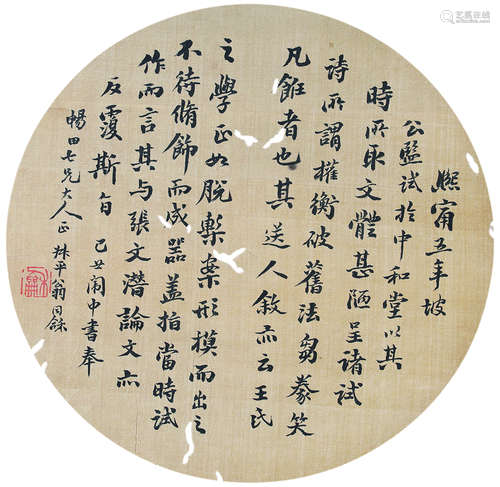 熙甯五年坡
公監試於中和堂以其
時所取文體甚陋呈諸試
詩所謂權衡破舊法芻豢笑
凡飪者也其送人敘亦云王氏
之學正如脫槧案形模而出之
不待脩飾而成器盖指當時試
作而言其与張文潛論文亦
反覆斯旨 己丑闈中書奉
暢田七兄大人正 叔平翁同龢